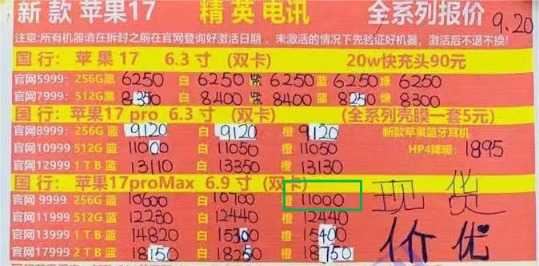 新款苹果17 精英电讯 全系列报价 9.20
注意:所有机器请在拆封之前在官网查询好激活日期、未激活的情况下先验证好机器,激活后不退不换!
国行:苹果17 6.3寸(双卡) 20w快充头90元
官网5999:256G 蓝 6250 白 6250 紫 6250 蓝 6250 绿 6250
官网7999:512G 黑 8350 白 8400 紫 8400 蓝 8250 绿 8300
国行:苹果17 pro 6.3寸(双卡) (全系列壳膜一套5元)
官网8999:256G 蓝 9120 白 9120 橙 9120 新款苹果蓝牙耳机
官网10999 512G 蓝 11000 白 11050 橙 11050 HP4降噪: 1895
官网12999 1TB 蓝 13110 白 13350 橙 13130
国行:苹果17proMax 6.9寸(双卡)
官网9999:256G 蓝 10600 白 10700 橙 11000 现货
官网11999 512G 蓝 12230 白 12440 橙 12440
官网13999 1TB 蓝 14820 白 15300 橙 15400 价优
官网17999 2TB 蓝 18150 白 18250 橙 18750